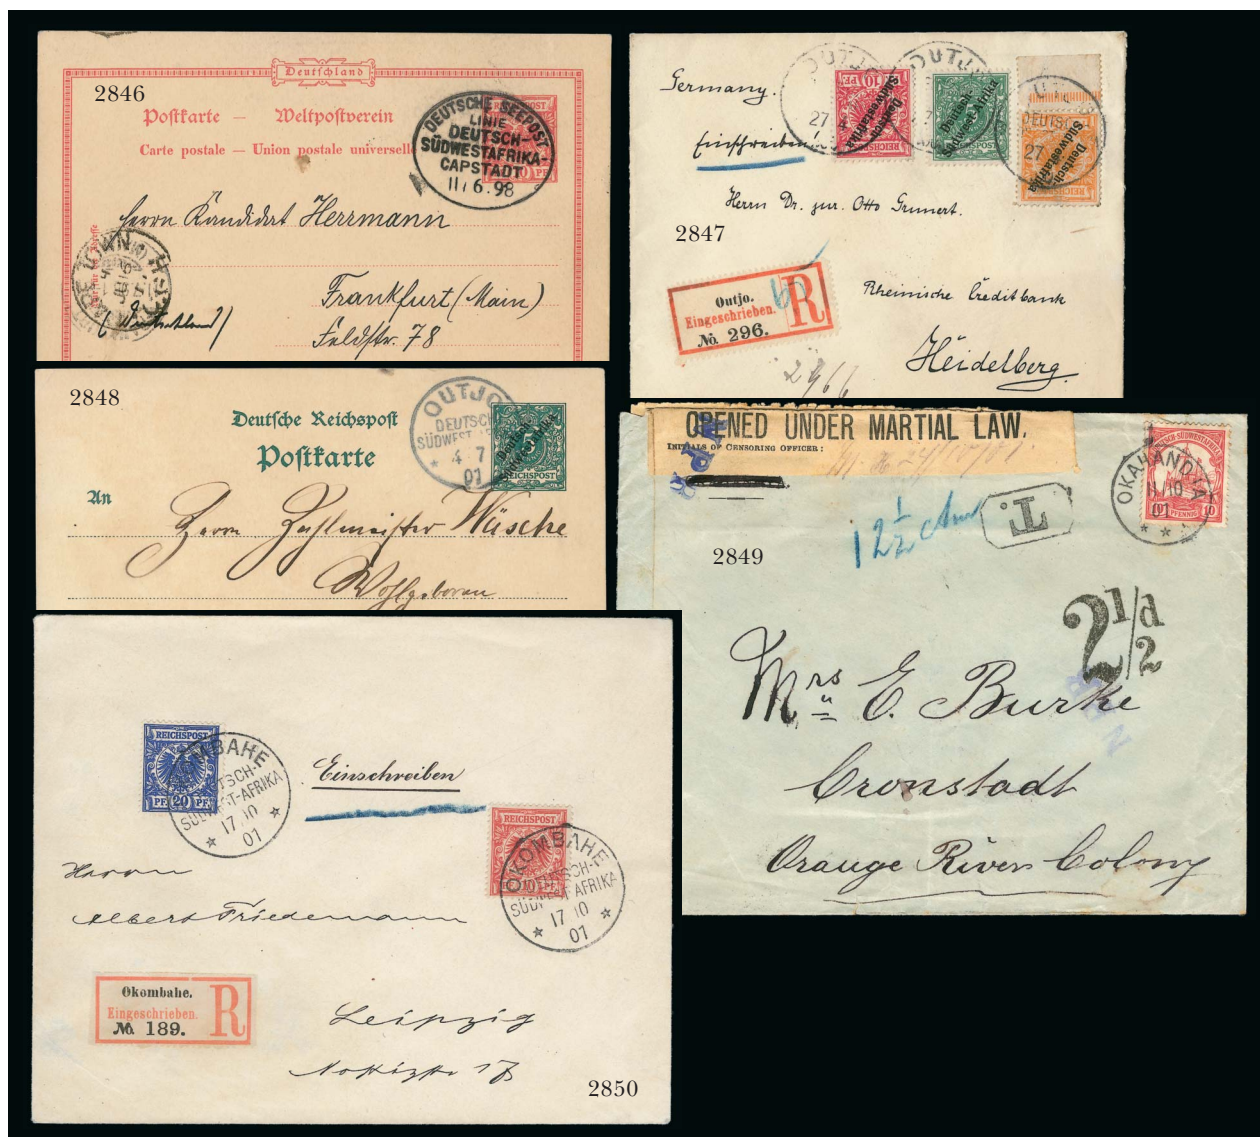 2846
Deutschland
Postkarte — Weltpostverein
Carte postale — Union postale universelle
REICHSPOST
10 PF
DEUTSCHE SEEPOST
LINIE
DEUTSCH-
SÜDWESTAFRIKA-
CAPSTADT
11/6.98
Herrn Kandidat Herrmann
Frankfurt (Main)
Feldstr. 78
(Deutschland)
Germany.
Einschreiben!
OUTJO
27
OUTJO
27
Deutsch-
Südwest-Afrika
Deutsch-
Südwest-Afrika
Deutsch-
Südwestafrika
Herrn Dr. jur. Otto Grunert.
2847
Rheinische Creditbank
Heidelberg.
Outjo.
Eingeschrieben.
No. 296.
R
2848
Deutsche Reichspost
Postkarte
An
OUTJO
DEUTSCH-
SÜDWEST-AFRIKA
4 7
01
Deutsch-
Südwest-Afrika
5
REICHSPOST
Herrn Zahlmeister Wäsche
Wohlgeboren
OPENED UNDER MARTIAL LAW.
INITIALS OF CENSORING OFFICER:
12½ cts
T.
DEUTSCH-SÜDWESTAFRIKA
10 PFENNIG 10
OKAHANDJA
11/10
01
2849
2½d
Mrs E. Burke
Cronstadt
Orange River Colony
REICHSPOST
PF 20 PF
OKOMBAHE
DEUTSCH-
SÜDWEST-AFRIKA
17 10
01
Einschreiben
REICHSPOST
OKOMBAHE
DEUTSCH-
SÜDWEST AFRIKA
17 10
01
Herrn
Albert Friedemann
Okombahe.
Eingeschrieben.
No. 189.
R
Leipzig
2850